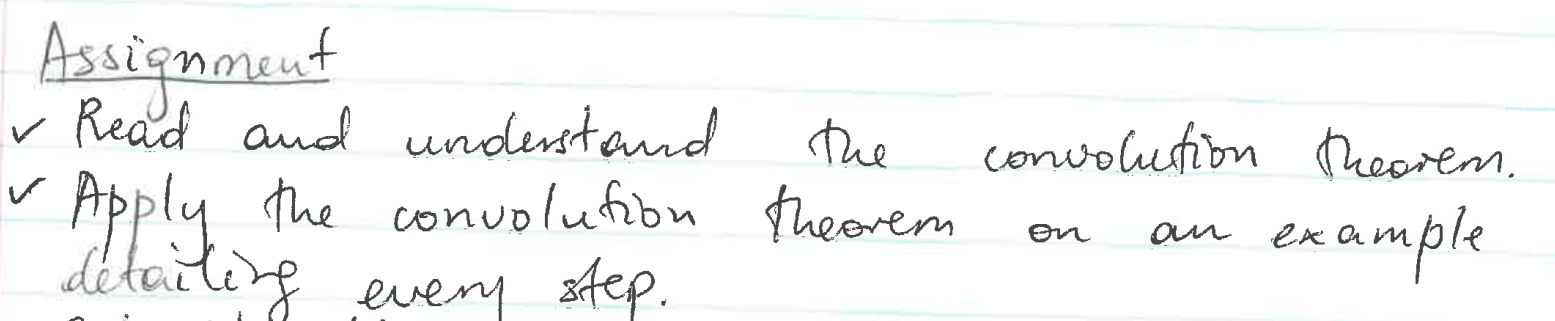 Assignment
✓ Read and understand the convolution theorem.
✓ Apply the convolution theorem on an example
detailing every step.